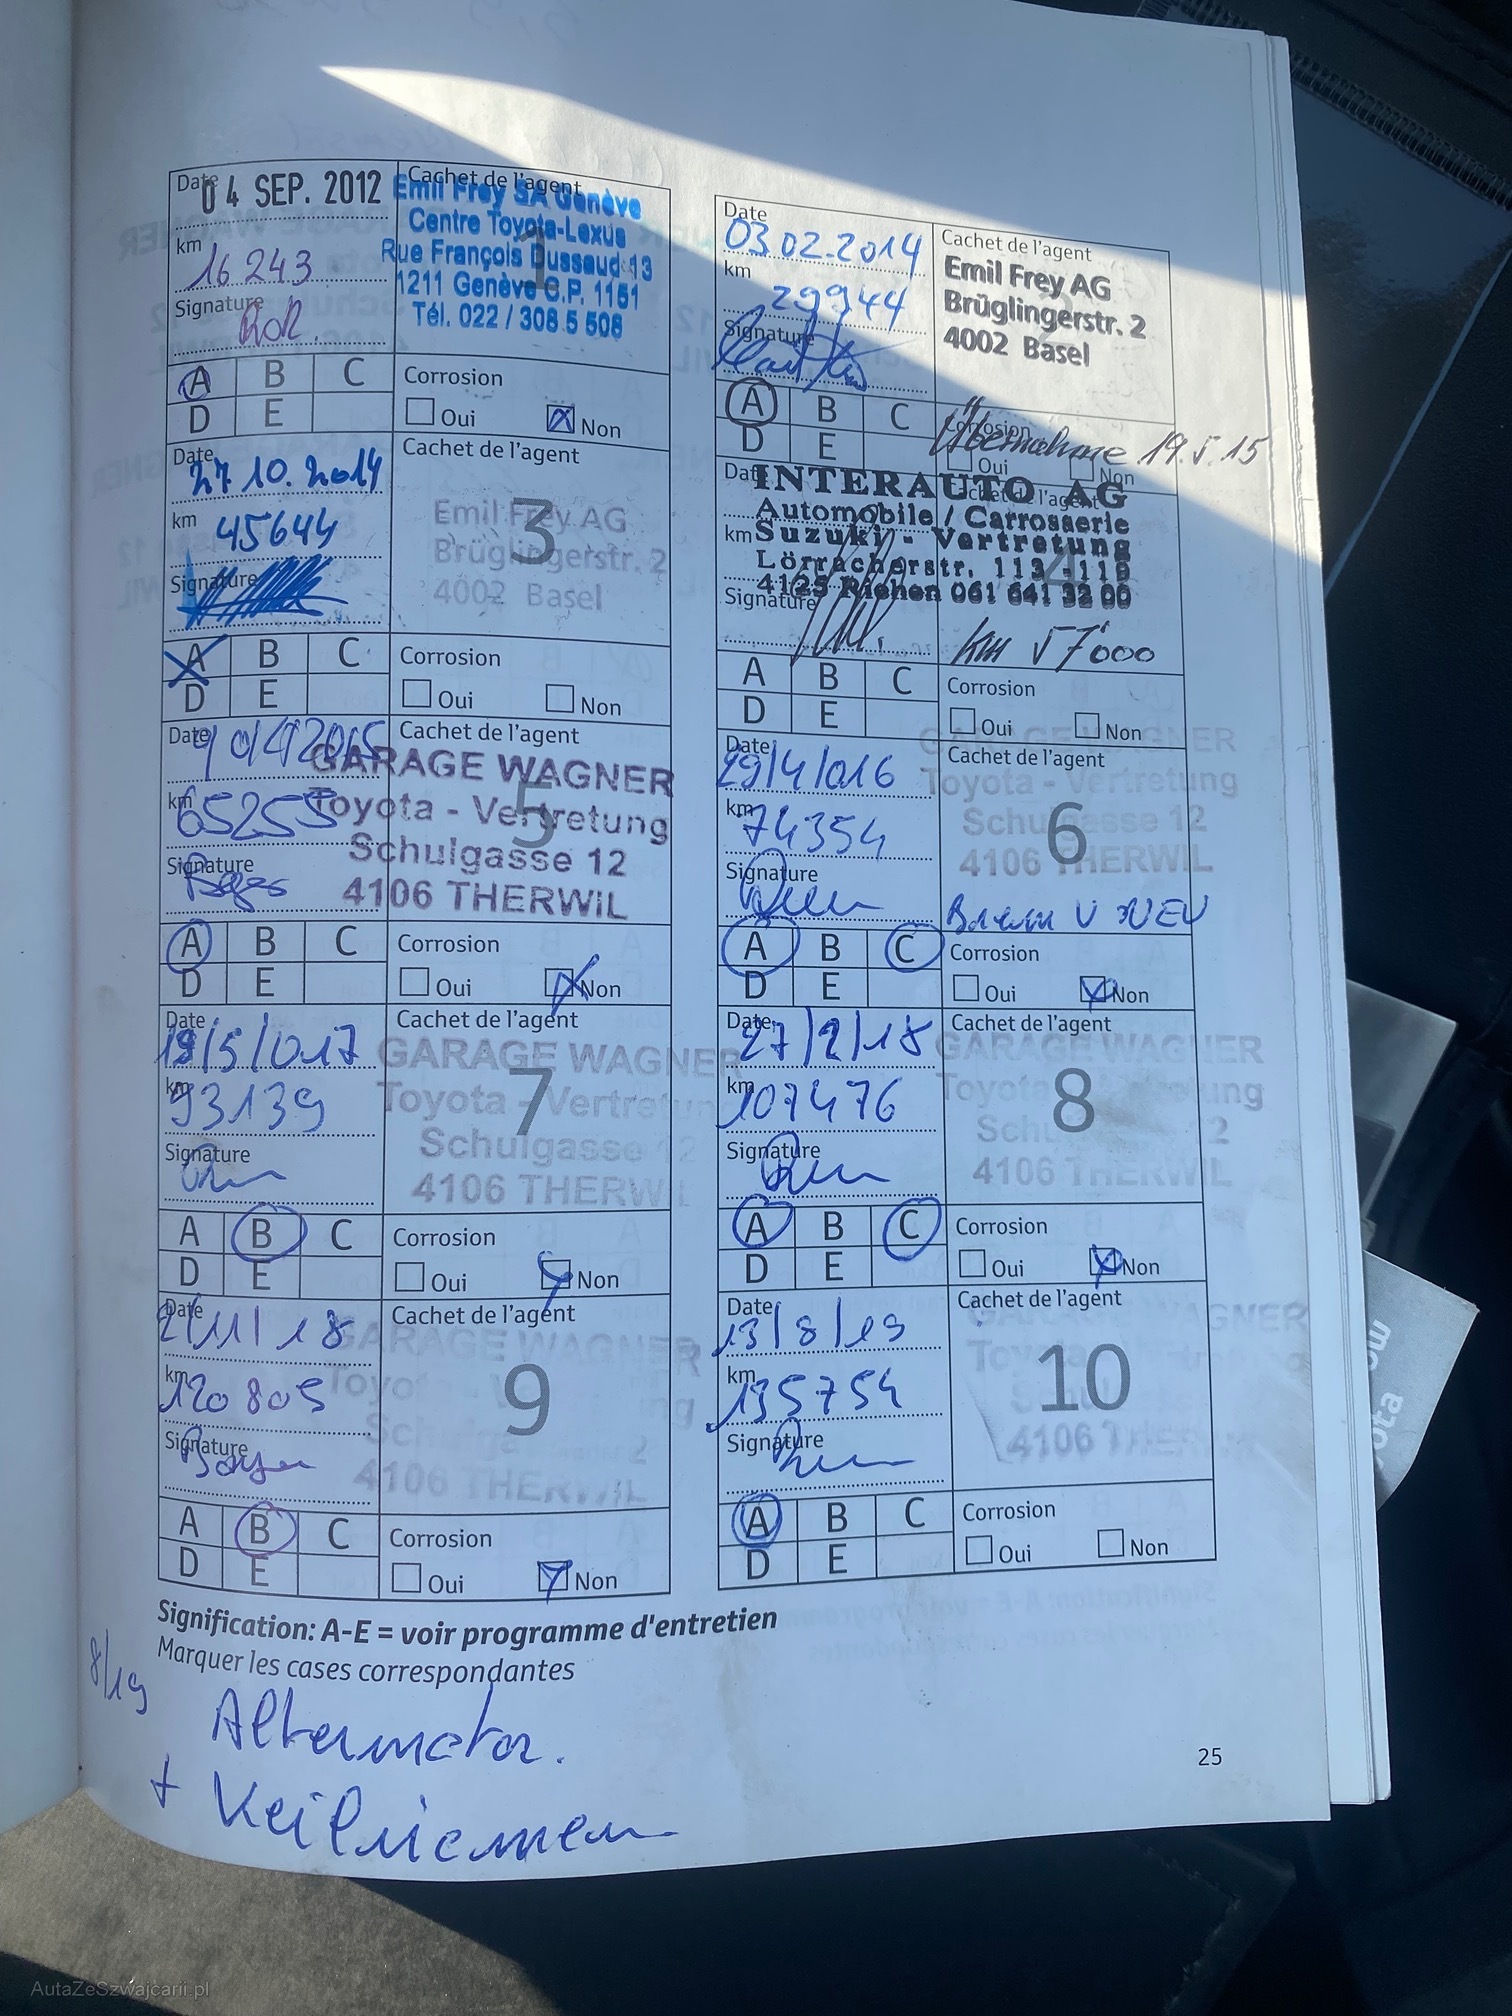 Date 04 SEP. 2012
km 16 243
Signature
Cachet de l'agent 1
Emil Frey SA Genève
Centre Toyota-Lexus
Rue François Dussaud 13
1211 Genève C.P. 1151
Tél. 022 / 308 5 508
A B C
D E
Corrosion
Oui Non
Date 03.02.2014
km 29944
Signature
Cachet de l'agent
Emil Frey AG
Brüglingerstr. 2
4002 Basel
A B C
D E
Corrosion
Oui Non
Übernahme 19.5.15
Date 27.10.2014
km 45644
Signature
Cachet de l'agent
3
Emil Frey AG
Brüglingerstr. 2
4002 Basel
A B C
D E
Corrosion
Oui Non
Date
km
Signature
Cachet de l'agent
4
INTERAUTO AG
Automobile / Carrosserie
Suzuki - Vertretung
Lörracherstr. 113 - 119
4125 Riehen 061 641 32 00
km 57'000
A B C
D E
Corrosion
Oui Non
Date
km 65255
Signature
Cachet de l'agent
5
GARAGE WAGNER
Toyota - Vertretung
Schulgasse 12
4106 THERWIL
A B C
D E
Corrosion
Oui Non
Date 29/4/016
km 74354
Signature
Cachet de l'agent
6
GARAGE WAGNER
Toyota - Vertretung
Schulgasse 12
4106 THERWIL
A B C
D E
Corrosion
Oui Non
Date 19/5/017
km 93139
Signature
Cachet de l'agent
7
GARAGE WAGNER
Toyota - Vertretung
Schulgasse 12
4106 THERWIL
A B C
D E
Corrosion
Oui Non
Date 27/2/18
km 107476
Signature
Cachet de l'agent
8
GARAGE WAGNER
4106 THERWIL
A B C
D E
Corrosion
Oui Non
Date 2/11/18
km 120805
Signature
Cachet de l'agent
9
GARAGE WAGNER
4106 THERWIL
A B C
D E
Corrosion
Oui Non
Date 13/8/19
km 135754
Signature
Cachet de l'agent
10
4106
A B C
D E
Corrosion
Oui Non
Signification: A-E = voir programme d'entretien
Marquer les cases correspondantes
8/19
Alternator.
+ Keilriemen
25
AutaZeSzwajcarii.pl